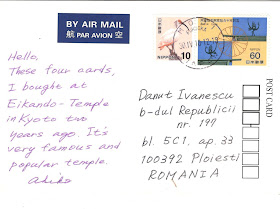 BY AIR MAIL
航 PAR AVION 空
NIPPON 10
NIPPON 60
日本郵便
Hello,
These four cards,
I bought at
Eikando-Temple
in Kyoto two
years ago. It's
very famous and
popular temple.
Akiko
Danut Ivanescu
b-dul Republicii
nr. 197
bl. 5C1, ap. 33
100392 Ploiesti
ROMANIA
POST CARD